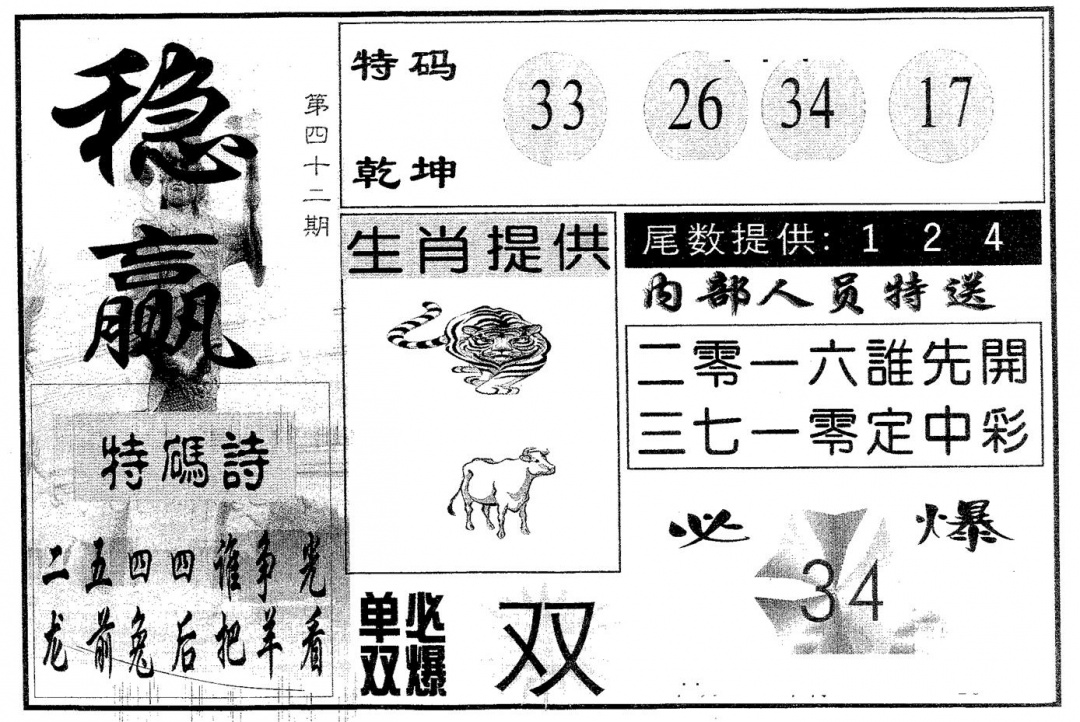 稳赢
第四十二期
特码
乾坤
33 26 34 17
特碼詩
二五四四谁争光
龙前兔后把羊看
生肖提供
尾数提供: 1 2 4
内部人员特送
二零一六誰先開
三七一零定中彩
必爆
34
单双必爆
双